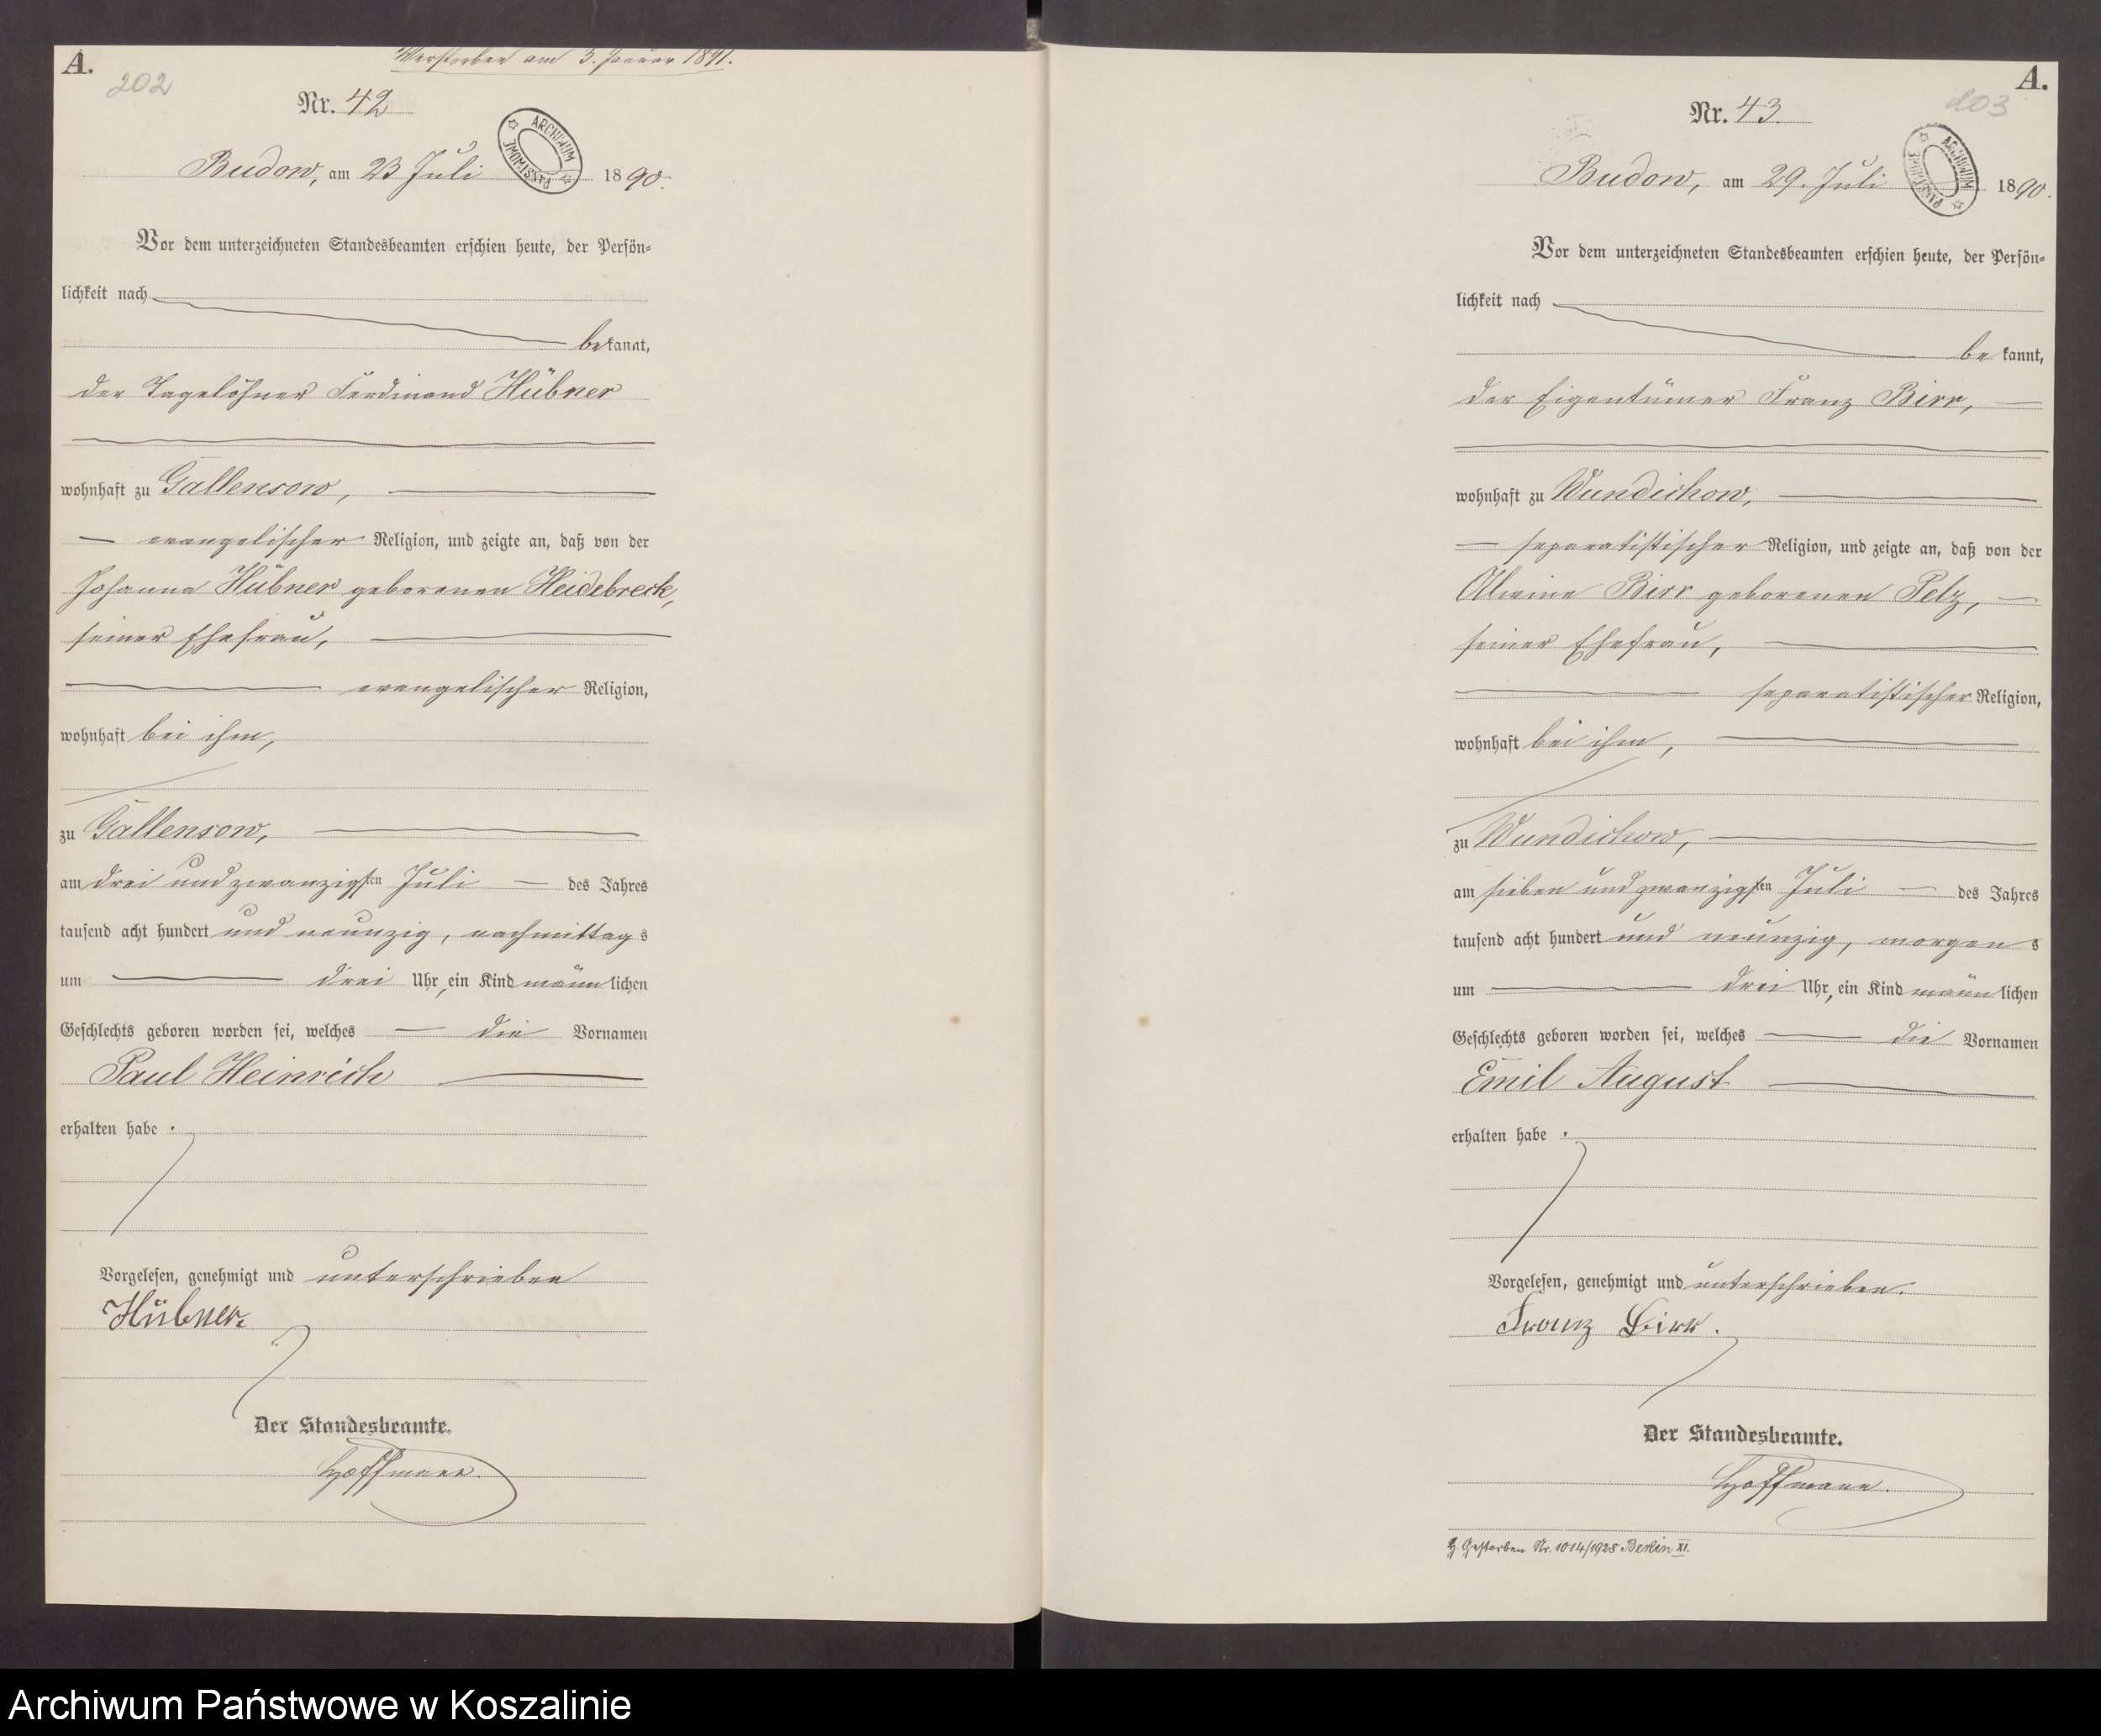 A.
202
Verstorben am 3. Januar 1891.
Nr. 42
ARCHIWUM PAŃSTWOWE
Budow, am 23 Juli 1890.
Vor dem unterzeichneten Standesbeamten erschien heute, der Persön-
lichkeit nach
bekannt,
der Tagelöhner Ferdinand Hübner
wohnhaft zu Gallensow,
evangelischer Religion, und zeigte an, daß von der
Johanna Hübner geborenen Heidebreck,
seiner Ehefrau,
evangelischer Religion,
wohnhaft bei ihm,
zu Gallensow,
am drei und zwanzigsten Juli des Jahres
tausend acht hundert und neunzig, nachmittags
um drei Uhr, ein Kind männlichen
Geschlechts geboren worden sei, welches die Vornamen
Paul Heinrich
erhalten habe.
Vorgelesen, genehmigt und unterschrieben
Hübner.
Der Standesbeamte.
Hoffmann.
A.
203
Nr. 43.
ARCHIWUM PAŃSTWOWE
Budow, am 29. Juli 1890.
Vor dem unterzeichneten Standesbeamten erschien heute, der Persön-
lichkeit nach
bekannt,
der Eigentümer Franz Birr,
wohnhaft zu Wundichow,
separatistischer Religion, und zeigte an, daß von der
Alwine Birr geborenen Pelz,
seiner Ehefrau,
separatistischer Religion,
wohnhaft bei ihm,
zu Wundichow,
am sieben und zwanzigsten Juli des Jahres
tausend acht hundert und neunzig, morgens
um drei Uhr, ein Kind männlichen
Geschlechts geboren worden sei, welches die Vornamen
Emil August
erhalten habe.
Vorgelesen, genehmigt und unterschrieben.
Franz Birr.
Der Standesbeamte.
Hoffmann.
Gestorben Nr. 1014/1928 Berlin XI.
Archiwum Państwowe w Koszalinie